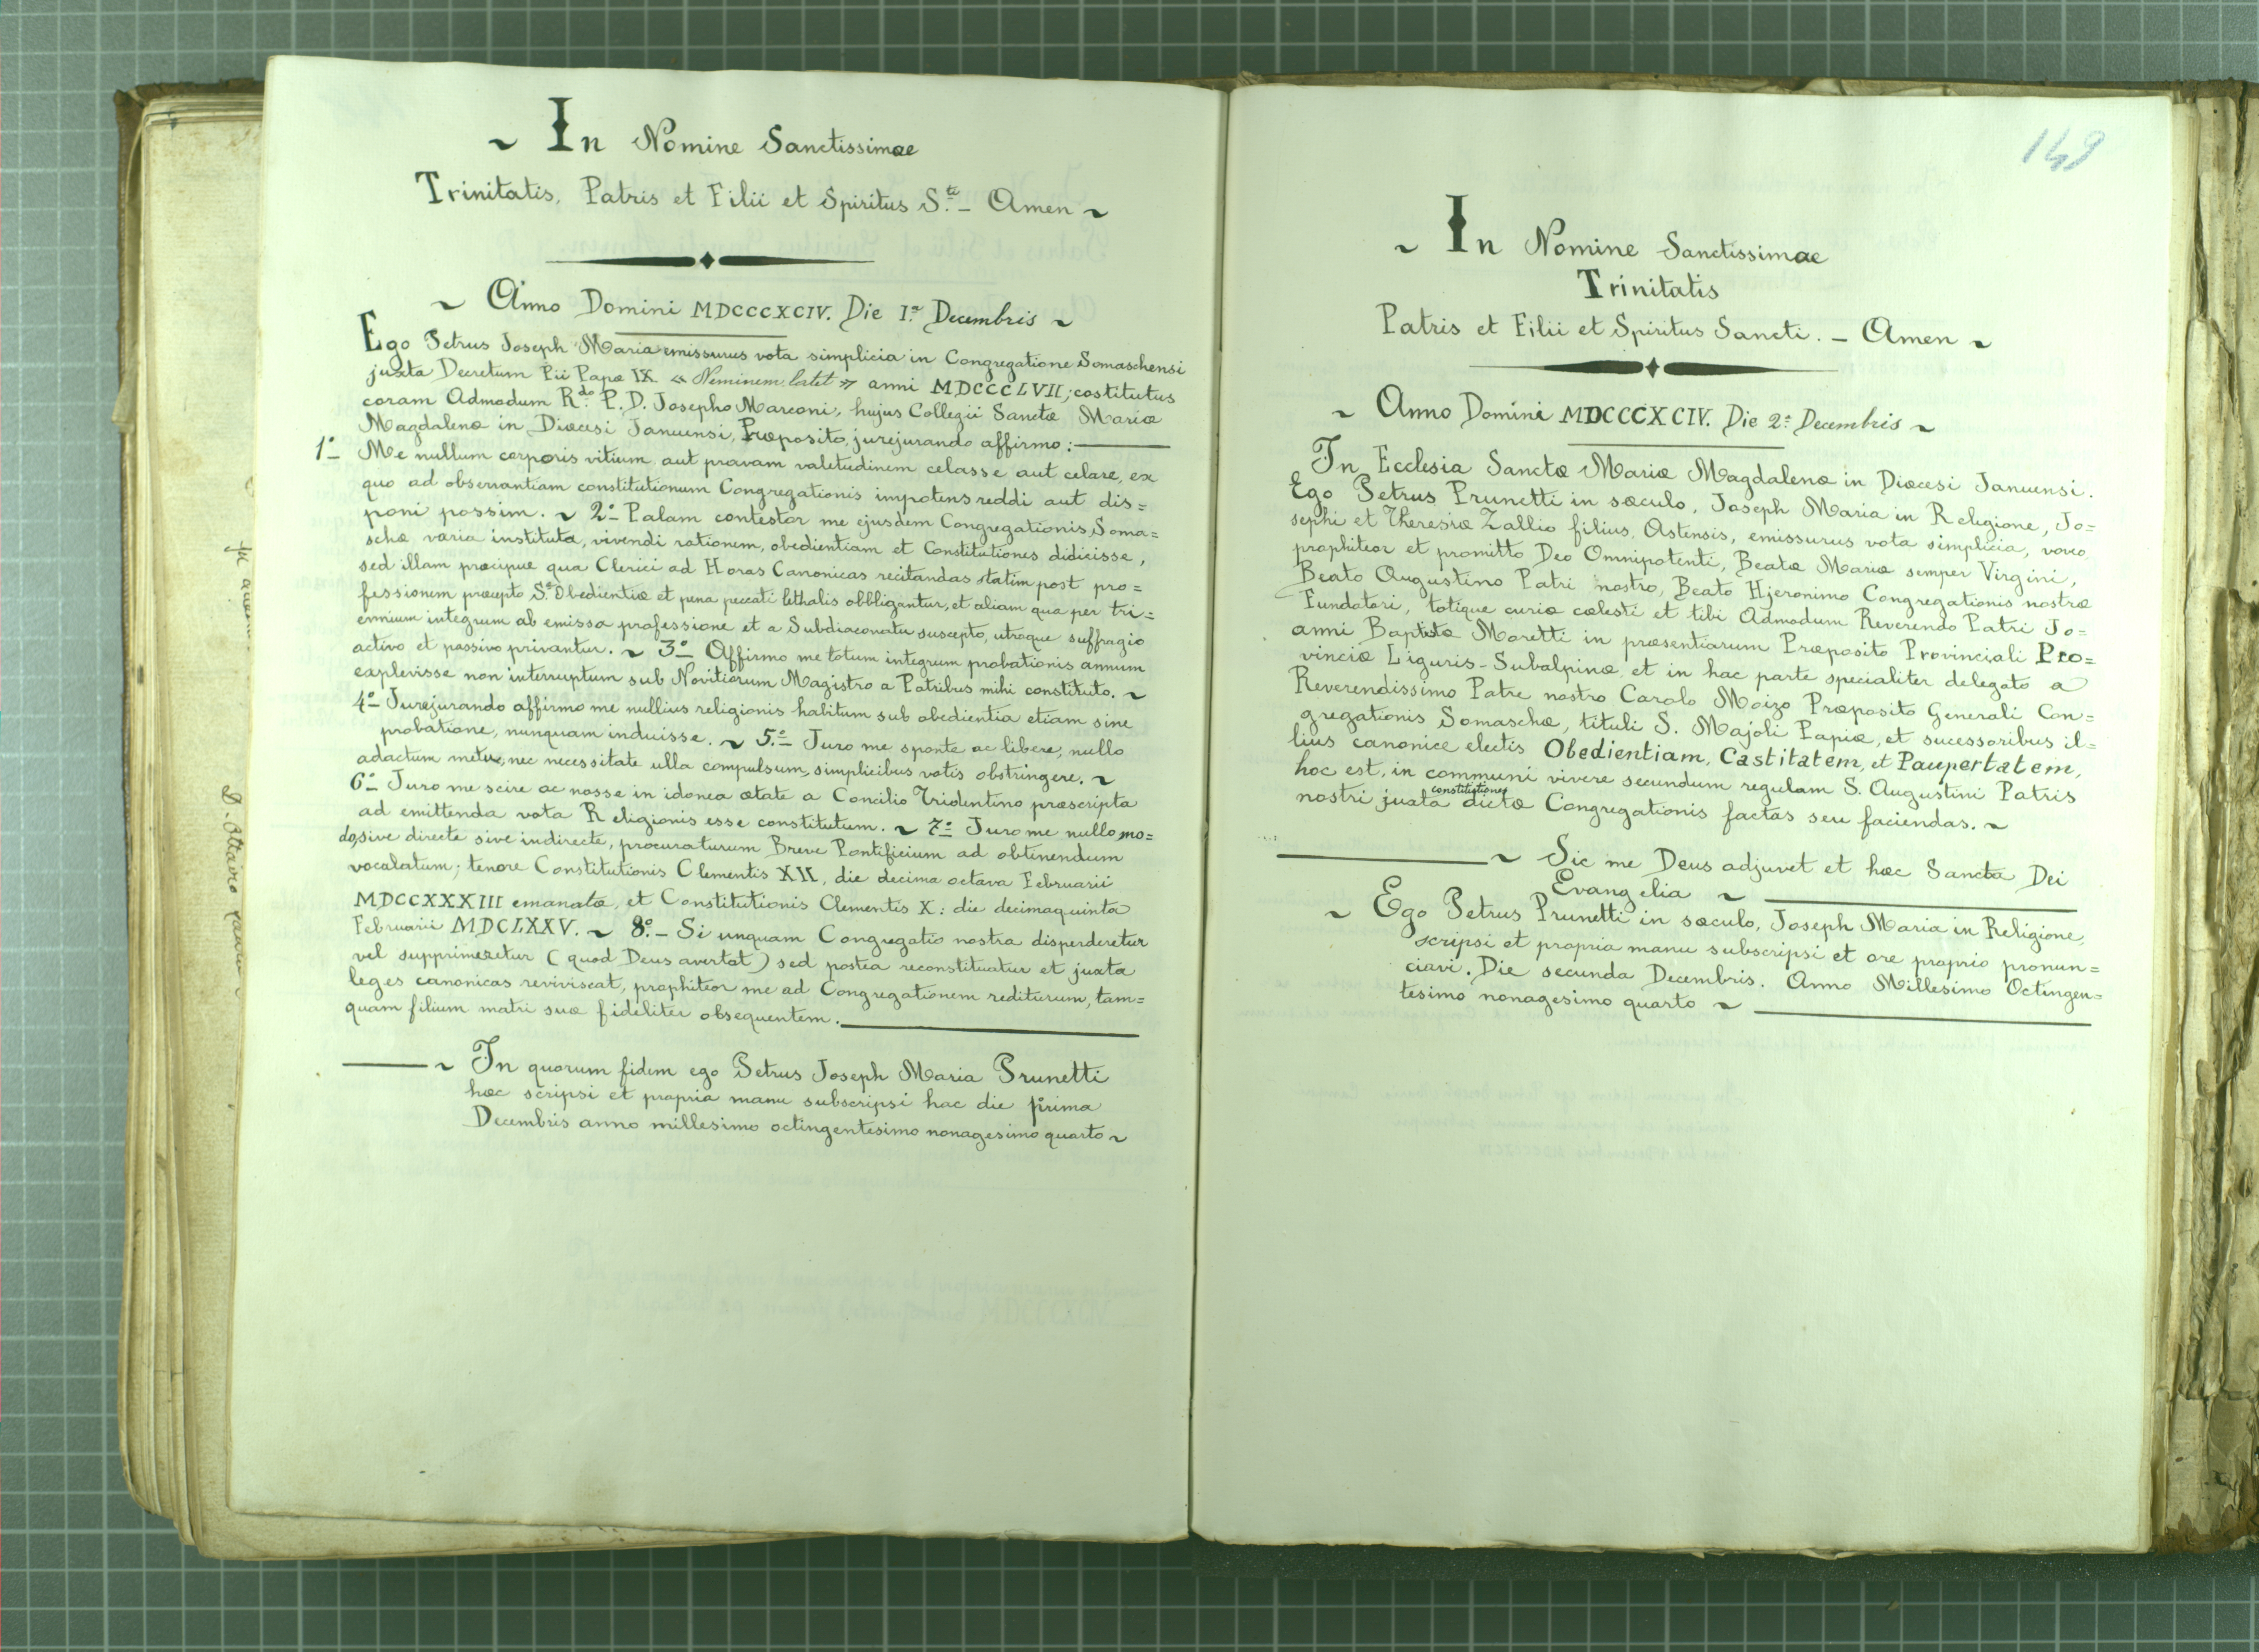 ~ In Nomine Sanctissimae
Trinitatis, Patris et Filii et Spiritus S.ti - Amen ~
~ Anno Domini MDCCCXCIV. Die I.a Decembris ~
Ego Petrus Joseph Maria emissurus vota simplicia in Congregatione Somaschensi
juxta Decretum Pii Papæ IX « Neminem latet » anni MDCCCLVII; costitutus
coram Admodum R.do P. D. Josepho Marconi, hujus Collegii Sanctæ Mariæ
Magdalenæ in Diœcesi Januensi, Præposito, jurejurando affirmo:
1° Me nullum corporis vitium aut pravam valetudinem celasse aut celare, ex
quo ad observantiam constitutionum Congregationis impotens reddi aut dis=
poni possim. ~ 2° Palam contestor me ejusdem Congregationis Soma=
schæ varia instituta, vivendi rationem, obedientiam et Constitutiones didicisse,
sed illam præcipue qua Clerici ad Horas Canonicas recitandas statim post pro=
fessionem præcepto S.æ Obedientiæ et pena peccati lethalis obbligantur, et aliam qua per tri=
ennium integrum ab emissa professione et a Subdiaconatu suscepto, utroque suffragio
activo et passivo privantur. ~ 3° Affirmo me totum integrum probationis annum
explevisse non interruptum sub Novitiorum Magistro a Patribus mihi constituto. ~
4° Jurejurando affirmo me nullius religionis habitum sub obedientia etiam sine
probatione, nunquam induisse. ~ 5.° Juro me sponte ac libere, nullo
adactum metu, nec necessitate ulla compulsum, simplicibus votis obstringere. ~
6° Juro me scire ac nosse in idonea ætate a Concilio Tridentino præscripta
ad emittenda vota Religionis esse constitutum. ~ 7° Juro me nullo mo=
do, sive directe sive indirecte, procuraturum Breve Pontificium ad obtinendum
vocalatum; tenore Constitutionis Clementis XII, die decima octava Februarii
MDCCXXXIII emanatæ, et Constitutionis Clementis X: die decimaquinta
Februarii MDCLXXV. ~ 8.° - Si unquam Congregatio nostra disperderetur
vel supprimeretur (quod Deus avertat) sed postea reconstituatur et juxta
leges canonicas reviviscat, prophiteor me ad Congregationem rediturum, tam=
quam filium matri suæ fideliter obsequentem.
~ In quorum fidem ego Petrus Joseph Maria Prunetti
hæc scripsi et propria manu subscripsi hac die prima
Decembris anno millesimo octingentesimo nonagesimo quarto ~
149
~ In Nomine Sanctissimae
Trinitatis
Patris et Filii et Spiritus Sancti. - Amen ~
~ Anno Domini MDCCCXCIV. Die 2.a Decembris ~
In Ecclesia Sanctæ Mariæ Magdalenæ in Diœcesi Januensi.
Ego Petrus Prunetti in sæculo, Joseph Maria in Religione, Jo=
sephi et Theresiæ Zallio filius, Astensis, emissurus vota simplicia, voveo
prophiteor et promitto Deo Omnipotenti, Beatæ Mariæ semper Virgini,
Beato Augustino Patri nostro, Beato Hjeronimo Congregationis nostræ
Fundatori, totique curiæ cœlesti et tibi Admodum Reverendo Patri Jo=
anni Baptistæ Moretti in præsentiarum Præposito Provinciali Pro=
vinciæ Liguris-Subalpinæ et in hac parte specialiter delegato a
Reverendissimo Patre nostro Carolo Moizo Præposito Generali Con=
gregationis Somaschæ, tituli S. Majoli Papiæ, et sucessoribus il=
lius canonice electis Obedientiam, Castitatem, et Paupertatem,
hoc est, in communi vivere secundum regulam S. Augustini Patris
nostri juxta constitutiones dictæ Congregationis factas seu faciendas. ~
~ Sic me Deus adjuvet et hæc Sancta Dei
Evangelia ~
~ Ego Petrus Prunetti in sæculo, Joseph Maria in Religione,
scripsi et propria manu subscripsi et ore proprio pronun=
ciavi. Die secunda Decembris. Anno Millesimo Octingen=
tesimo nonagesimo quarto ~